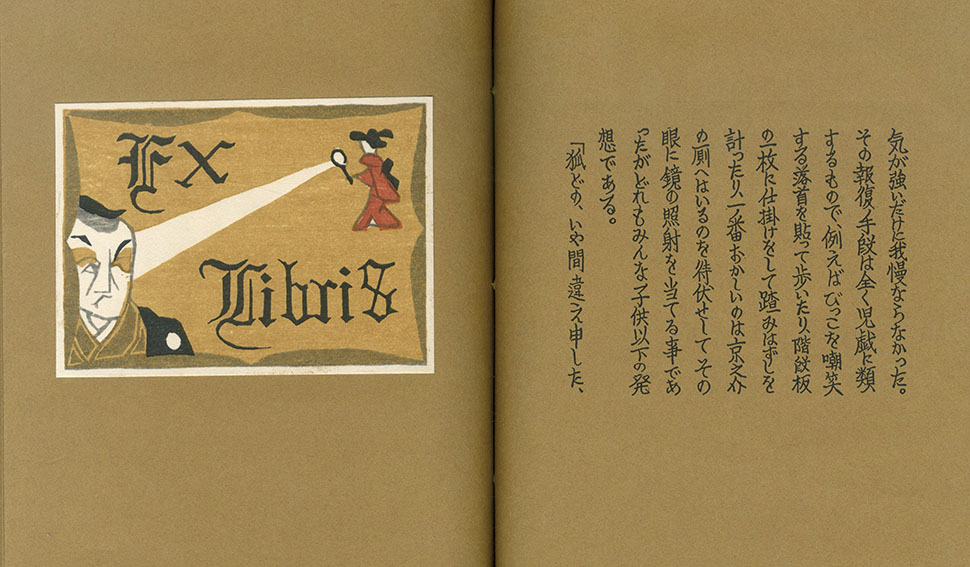 Ex
Libris
気が強いだけに我慢ならなかった。
その報復手段は全く児戯に類
するもので、例えばびっこを嘲笑
する落首を貼って歩いたり、階段板
の一枚に仕掛けをして踏みはずしを
計ったり、一番おかしいのは京之介
の厠へはいるのを待伏せしてその
眼に鏡の照射を当てる事であ
ったがどれもみんな子供以下の発
想である。
「狐どの、いや間違え申した、